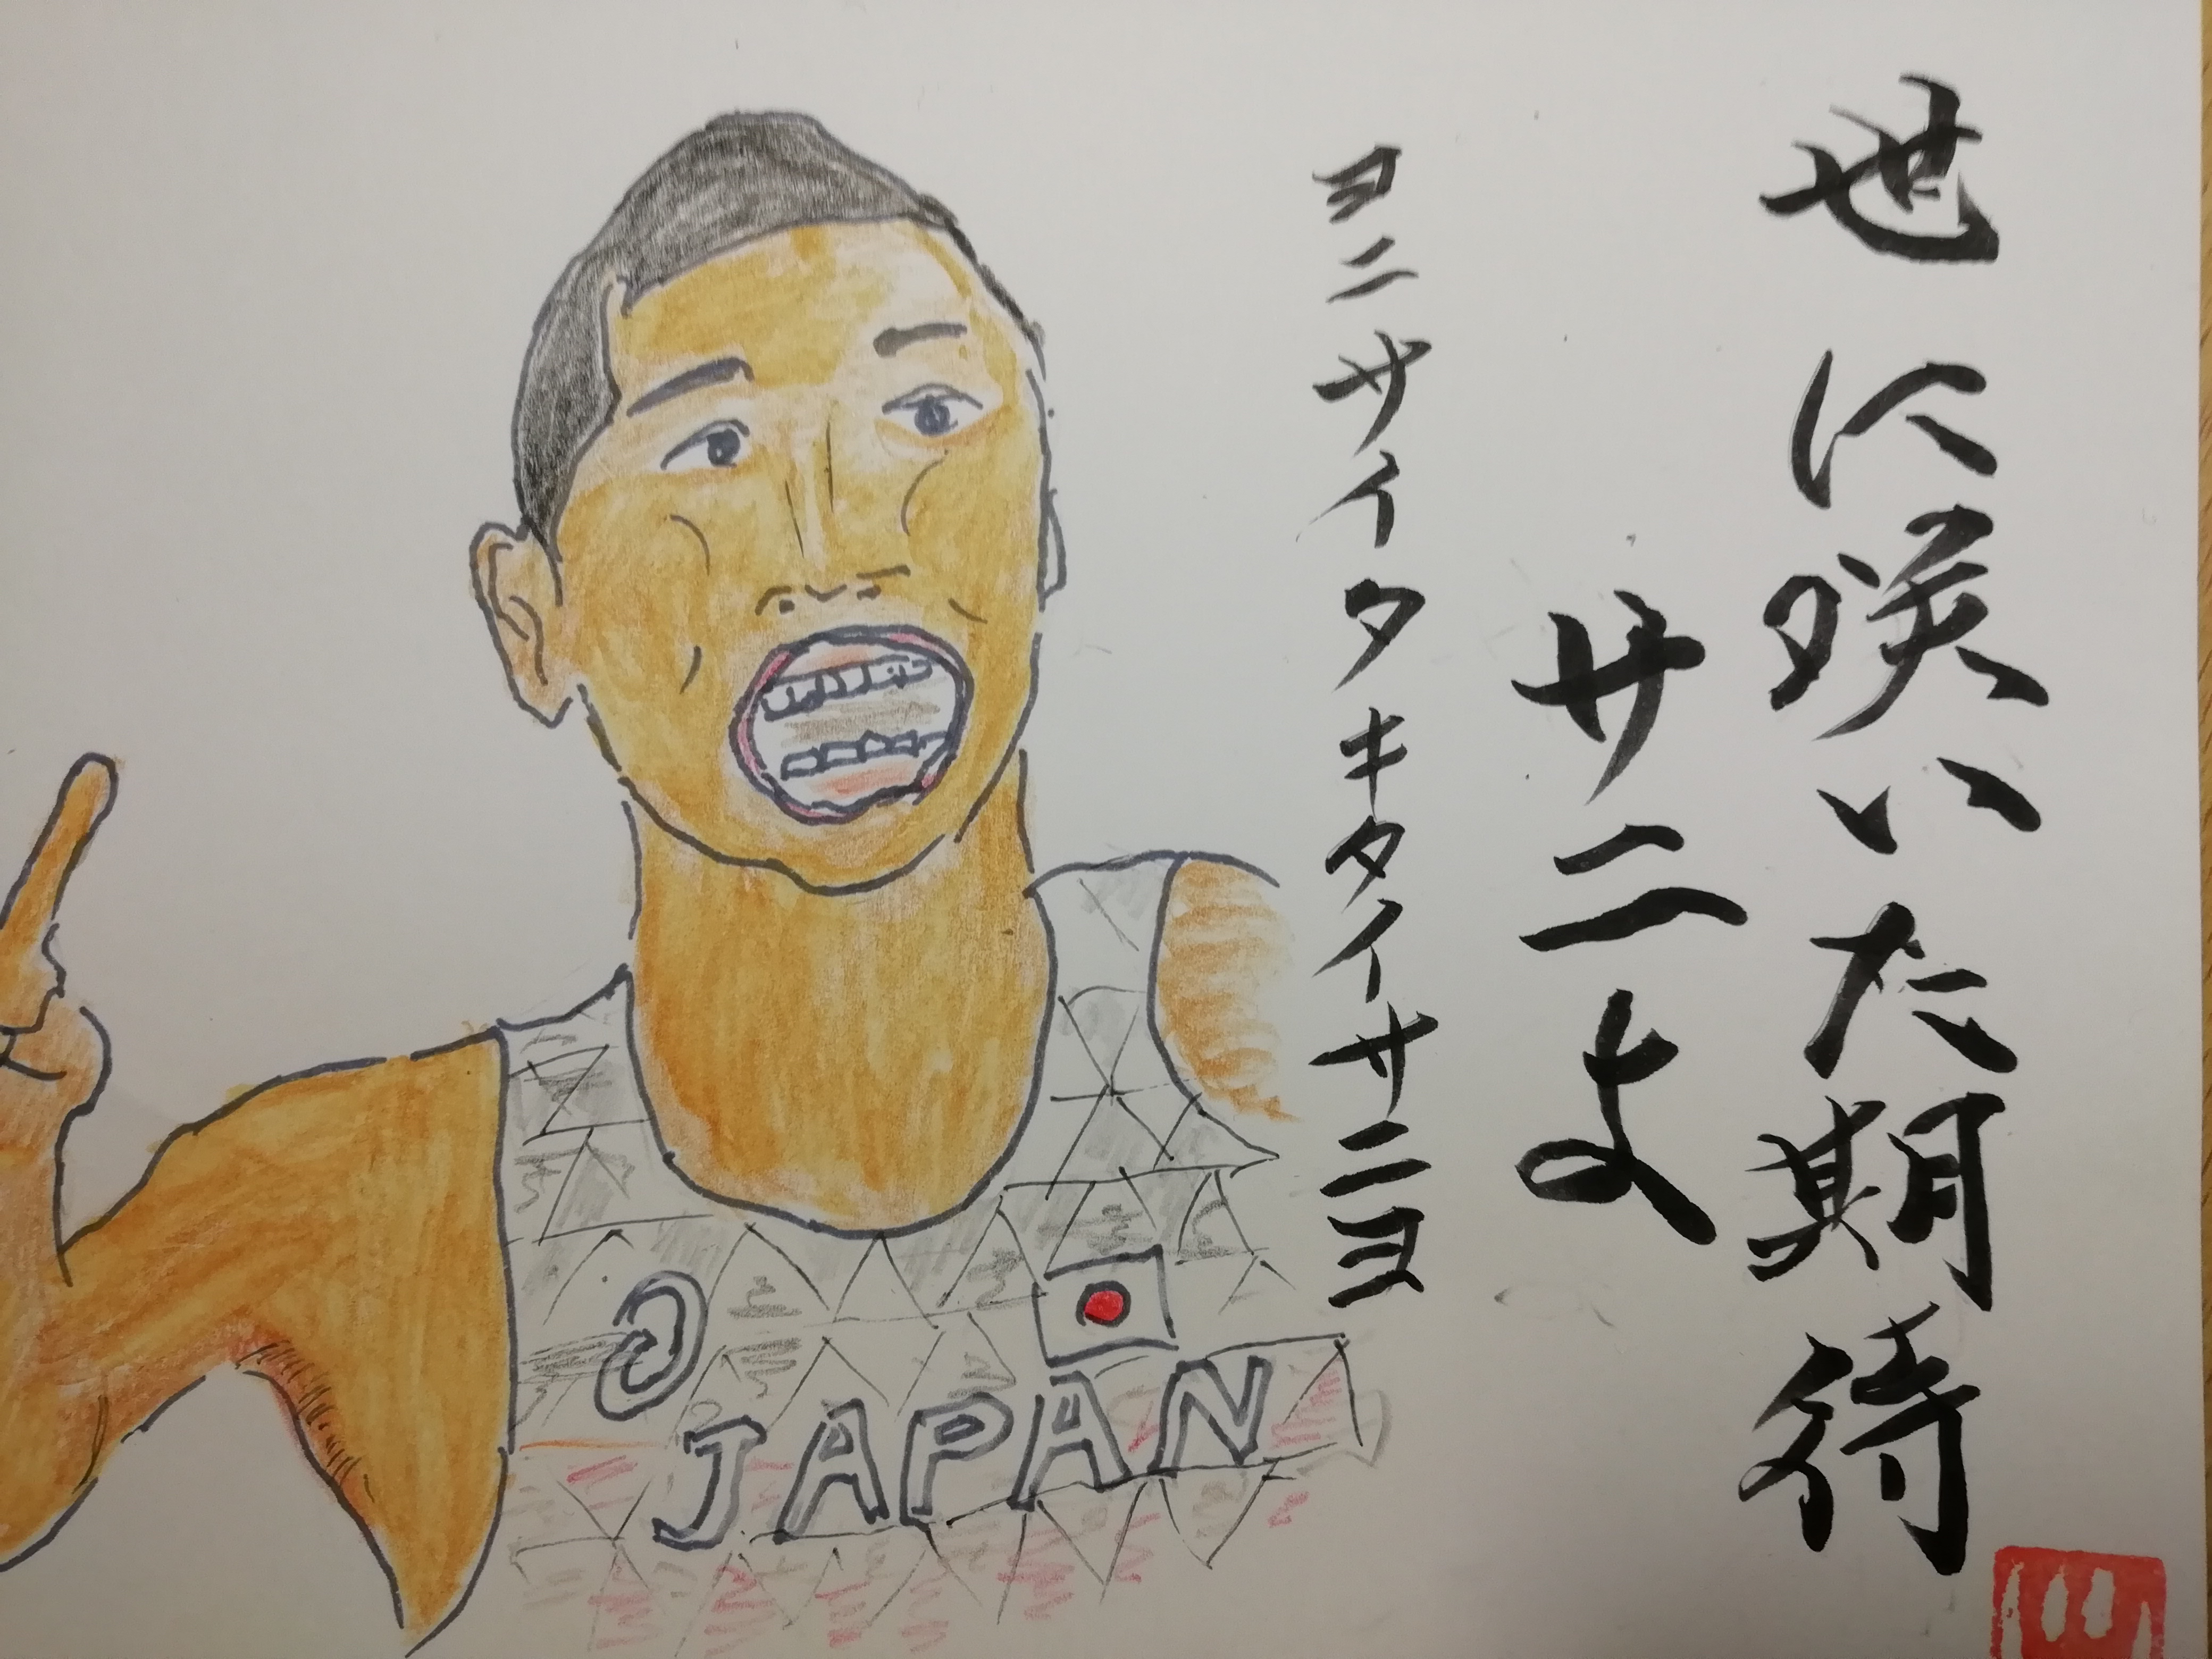 世に咲いた期待
サニよ
ヨニサイタキタイサニヨ
JAPAN